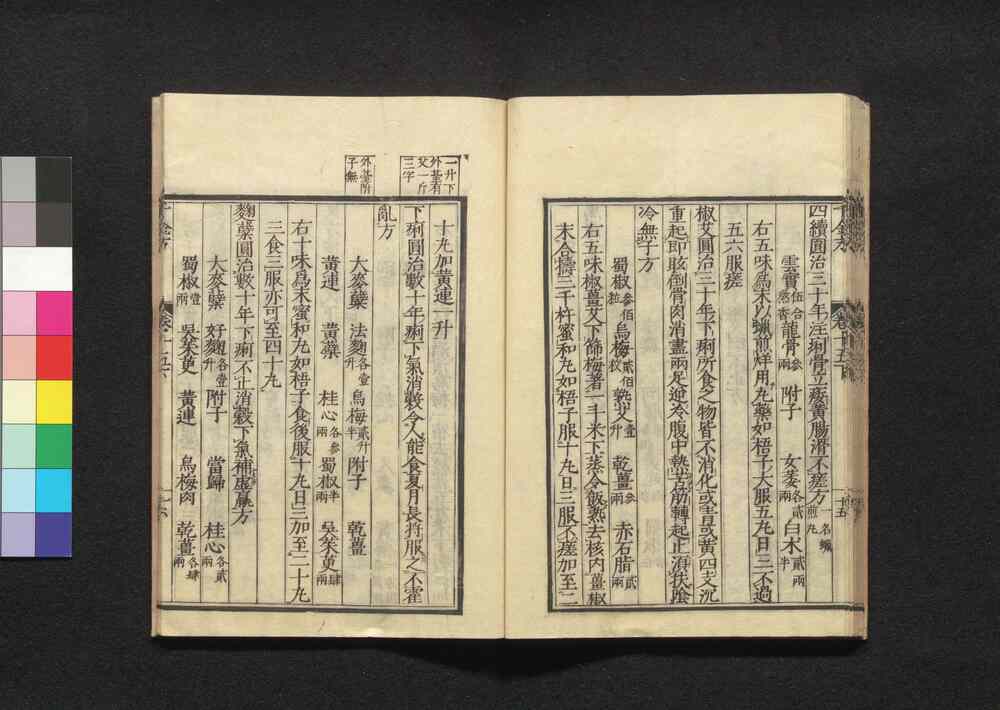 四續圓治三十年注痢骨立痿黃腸滑不瘥方一名蠟煎丸
雲實伍合熬香龍骨參兩附子女萎各貳兩白朮貳兩半
右五味爲末以蠟煎烊用丸藥如梧子大服五丸日三不過
五六服瘥
椒艾圓治三十年下痢所食之物皆不消化或青或黃四支沉
重起即眩倒骨肉消盡兩足逆冷腹中熱苦筋轉起止須扶陰
冷無子方
蜀椒參佰粒烏梅貳佰枚熟艾壹升乾薑參兩赤石脂貳兩
右五味椒薑艾下篩梅著一斗米下蒸令飯熟去核內薑椒
末合擣三千杵蜜和丸如梧子服十丸日三服不瘥加至二
千金方
卷十五下
十五
十丸加黃連一升
一升下外臺有艾一斤三字
下痢圓治數十年痢下氣消穀令人能食夏月長將服之不霍
亂方
外臺附子無
大麥蘖法麴各壹升烏梅貳升半附子乾薑
黃連黃蘗桂心各參兩蜀椒半兩吳茱萸肆兩
右十味爲末蜜和丸如梧子食後服十丸日三加至二十丸
三食三服亦可至四十丸
麴蘖圓治數十年下痢不止消穀下氣補虛羸方
大麥蘖好麴各壹升附子當歸桂心各貳兩
蜀椒壹兩吳茱萸黃連烏梅肉乾薑各肆兩